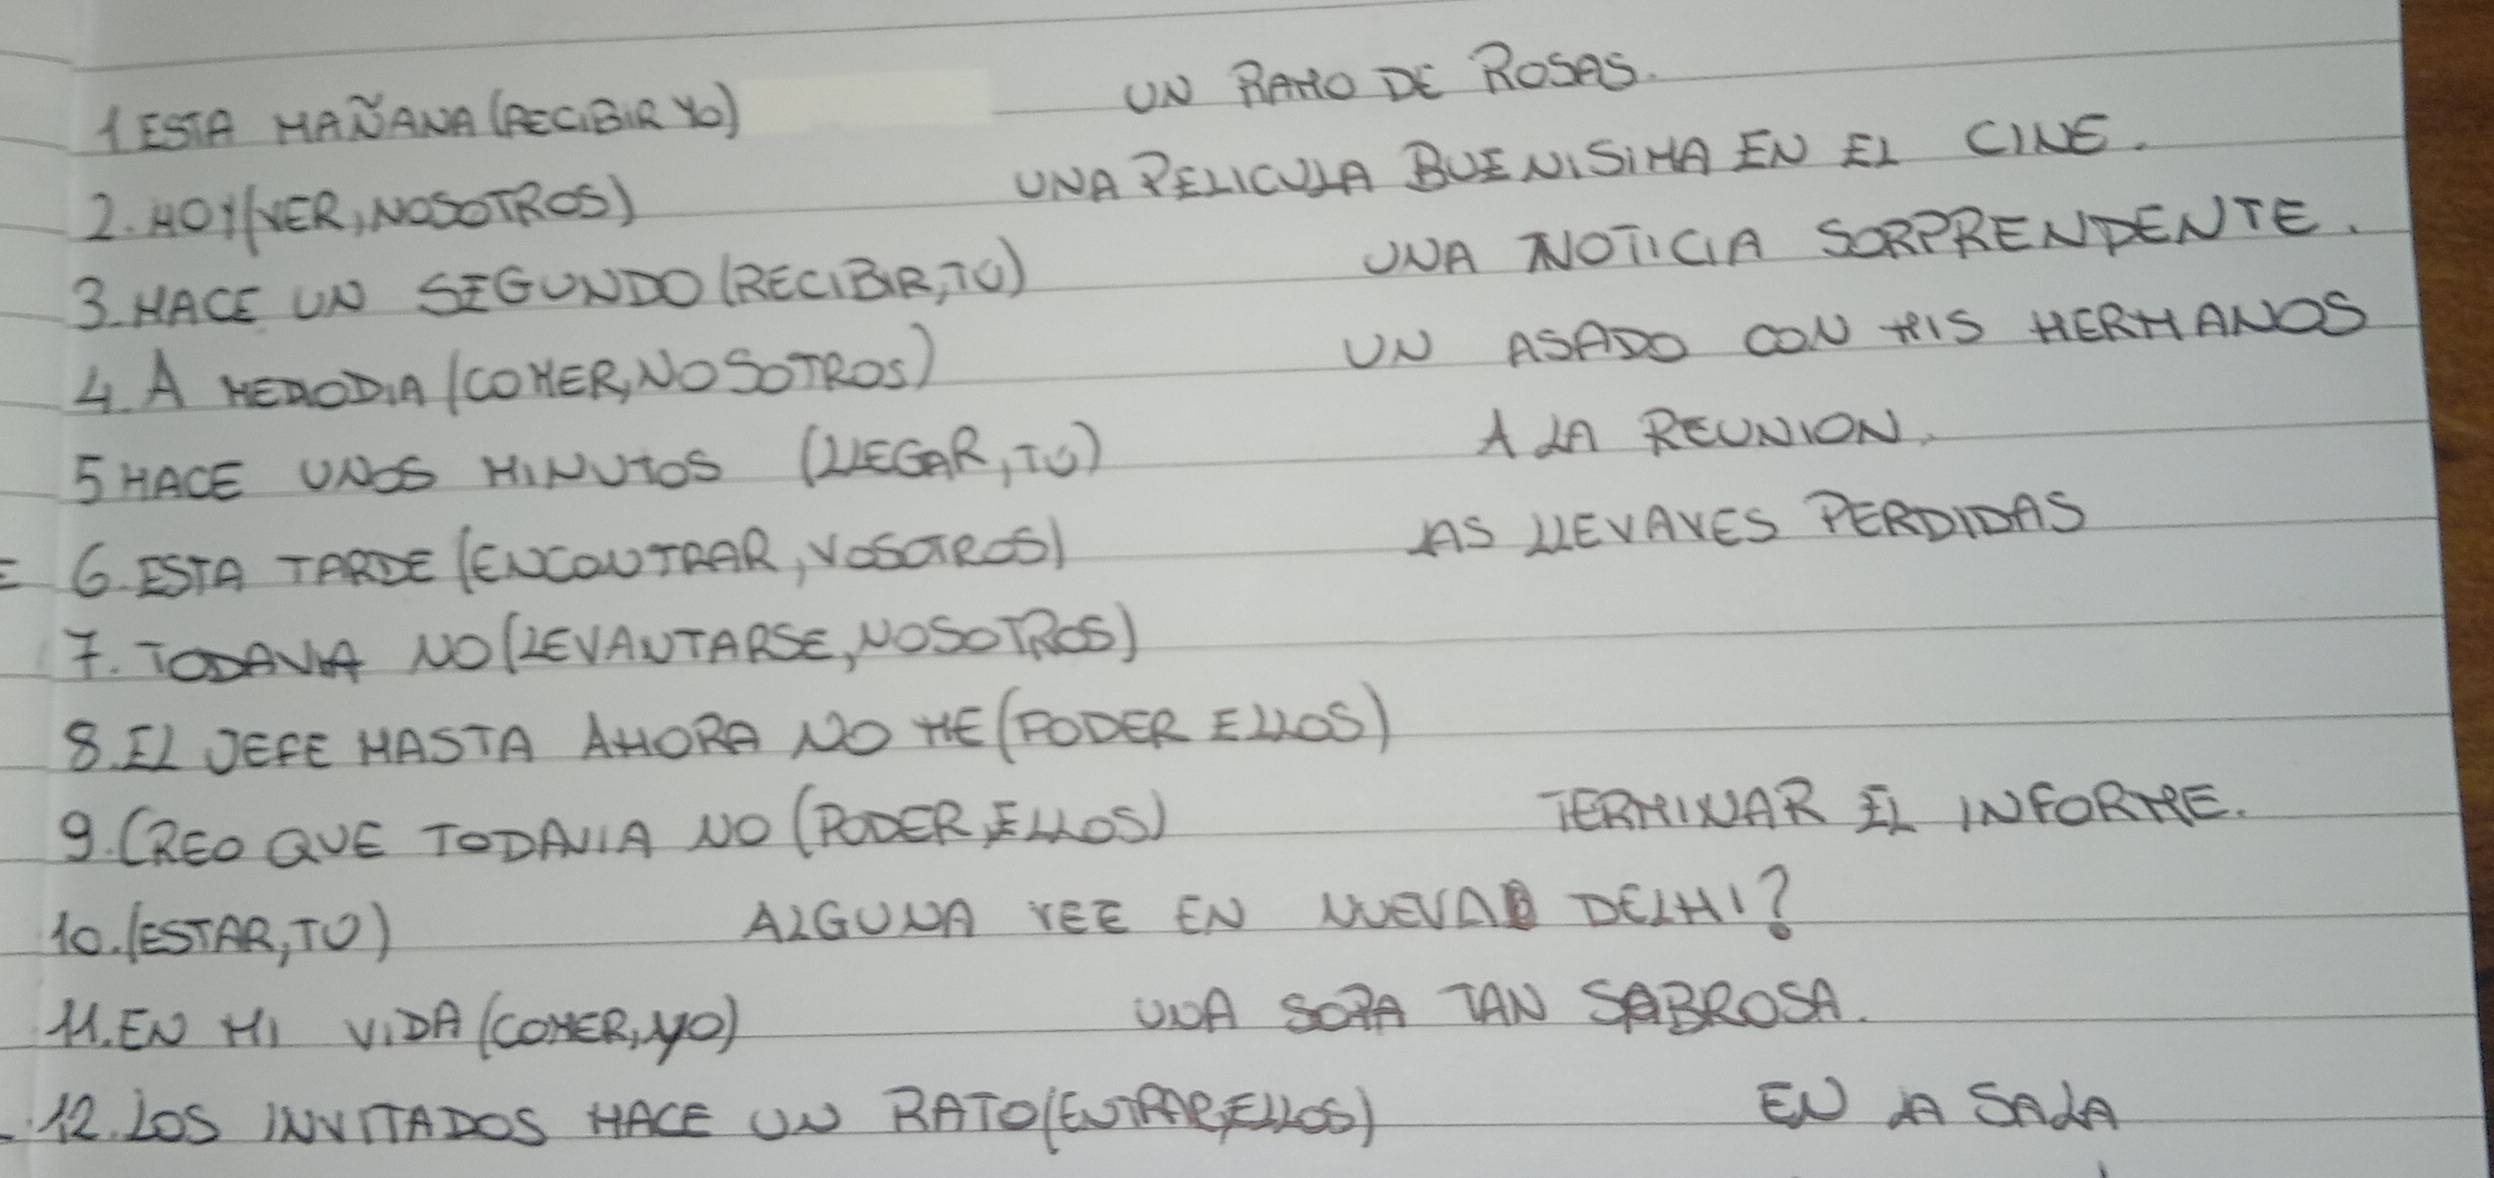 1 ESTA MAÑANA (RECIBIR YO) UN RAMO DE ROSAS.
2. HOY (VER, NOSOTROS) UNA PELICULA BUENISIMA EN EL CINE.
3. HACE UN SEGUNDO (RECIBIR, TU) UNA NOTICIA SORPRENDENTE.
4. A MEDODIA (COMER, NOSOTROS) UN ASADO CON MIS HERMANOS
5 HACE UNOS MINUTOS (LLEGAR, TU) A LA REUNION.
6. ESTA TARDE (ENCONTRAR, VOSOTROS) LAS LLEVAVES PERDIDAS
7. TODAVIA NO (LEVANTARSE, NOSOTROS)
8. EL JEFE HASTA AHORA NO ME (PODER ELLOS)
9. CREO QUE TODAVIA NO (PODER, ELLOS) TERMINAR EL INFORME.
10. (ESTAR, TU) ALGUNA VEZ EN NUEVA DELHI?
11. EN MI VIDA (COMER, YO) UNA SOPA TAN SABROSA.
12. LOS INVITADOS HACE UN RATO (ENTRAR, ELLOS) EN LA SALA